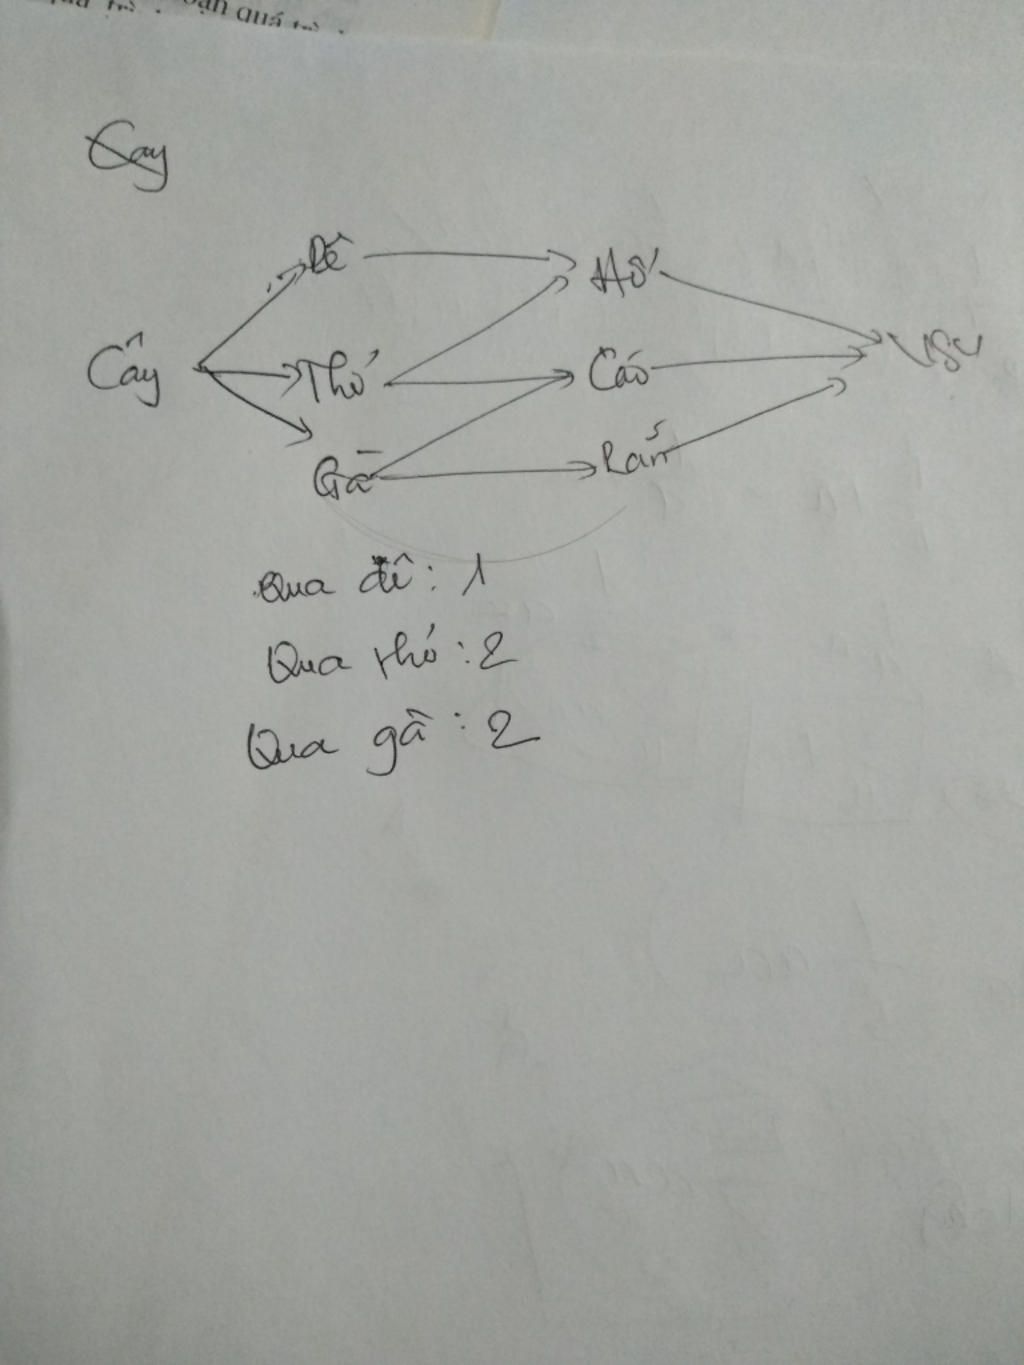 quá tr
Cay
Dê Hổ
Cây Thỏ Cáo VSV
Gà Rắn
Qua dê: 1
Qua thỏ: 2
Qua gà: 2